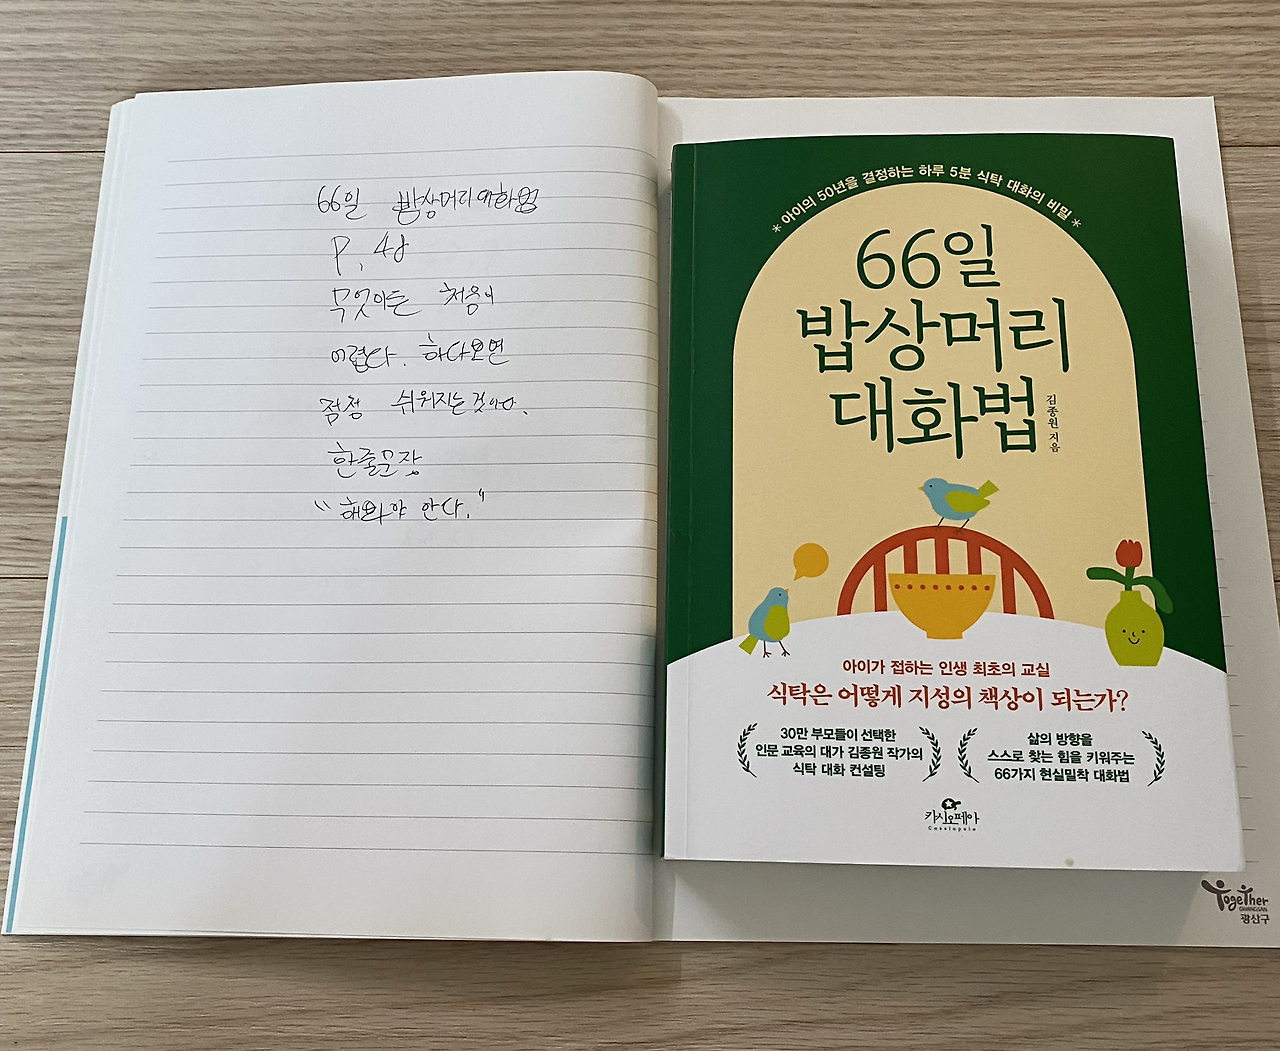 66일 밥상머리대화법
P. 48
무엇이든 처음이
어렵다. 하다보면
점점 쉬워지는것이다.
한줄문장
"해봐야 안다."
* 아이의 50년을 결정하는 하루 5분 식탁 대화의 비밀 *
66일
밥상머리
대화법
김종원 지음
아이가 접하는 인생 최초의 교실
식탁은 어떻게 지성의 책상이 되는가?
30만 부모들이 선택한
인문 교육의 대가 김종원 작가의
식탁 대화 컨설팅
삶의 방향을
스스로 찾는 힘을 키워주는
66가지 현실밀착 대화법
카시오페아
Cassiopeia
Together
GWANGSAN
광산구